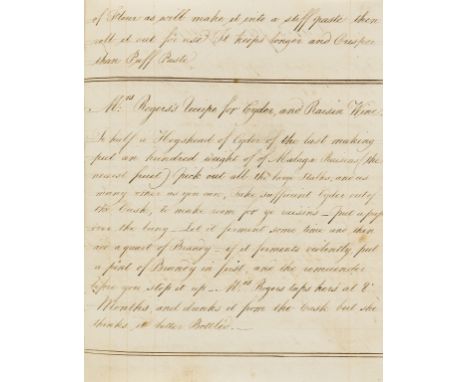 of Flour as will make it into a stiff paste then
roll it out for use It keeps longer and Crisper
than Puff Paste
Mrs Rogers's Receipe for Cyder, and Raisin Wine
To half a Hogshead of Cyder of the last making
put an hundred weight of of Malaga Raisins (the
newest fruit) (pick out all the large Stalks, and as
many other as you can, take sufficient Cyder out of
the Cask, to make room for ye raisins - put a
over the bung - Let it ferment some time and then
a quart of Brandy - if it ferments violently put
a pint of Brandy in first, and the remainder
before you stop it up - Mrs Rogers taps hers at
Months, and drinks it from the Cask but she
thinks it better Bottled. -